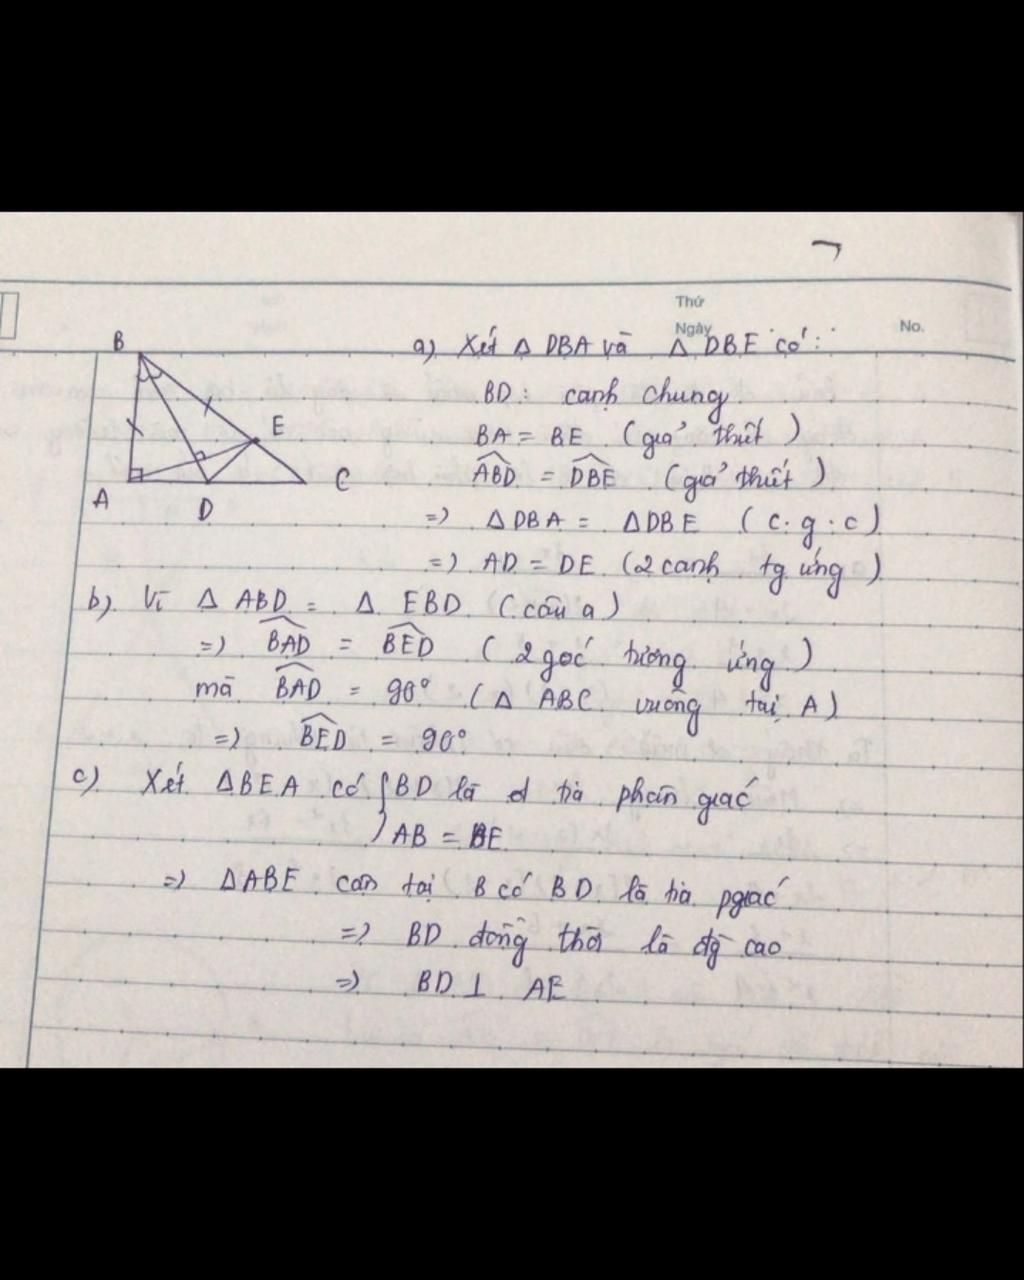 Thứ
Ngày
No.
B
E
A
D
C
a) Xét Δ DBA và Δ DBE có:
BD: cạnh chung
BA = BE (giả thiết)
ABD = DBE (giả thiết)
=> Δ DBA = Δ DBE (c.g.c)
=> AD = DE (2 cạnh tg ứng)
b) Vì Δ ABD = Δ EBD (câu a)
=> BAD = BED (2 góc tương ứng)
mà BAD = 90° (Δ ABC vuông tại A)
=> BED = 90°
c) Xét ΔBEA có { BD là tia phân giác
AB = BE
=> ΔABE cân tại B có BD là tia pgiác
=> BD đồng thời là đg cao
=> BD ⊥ AE